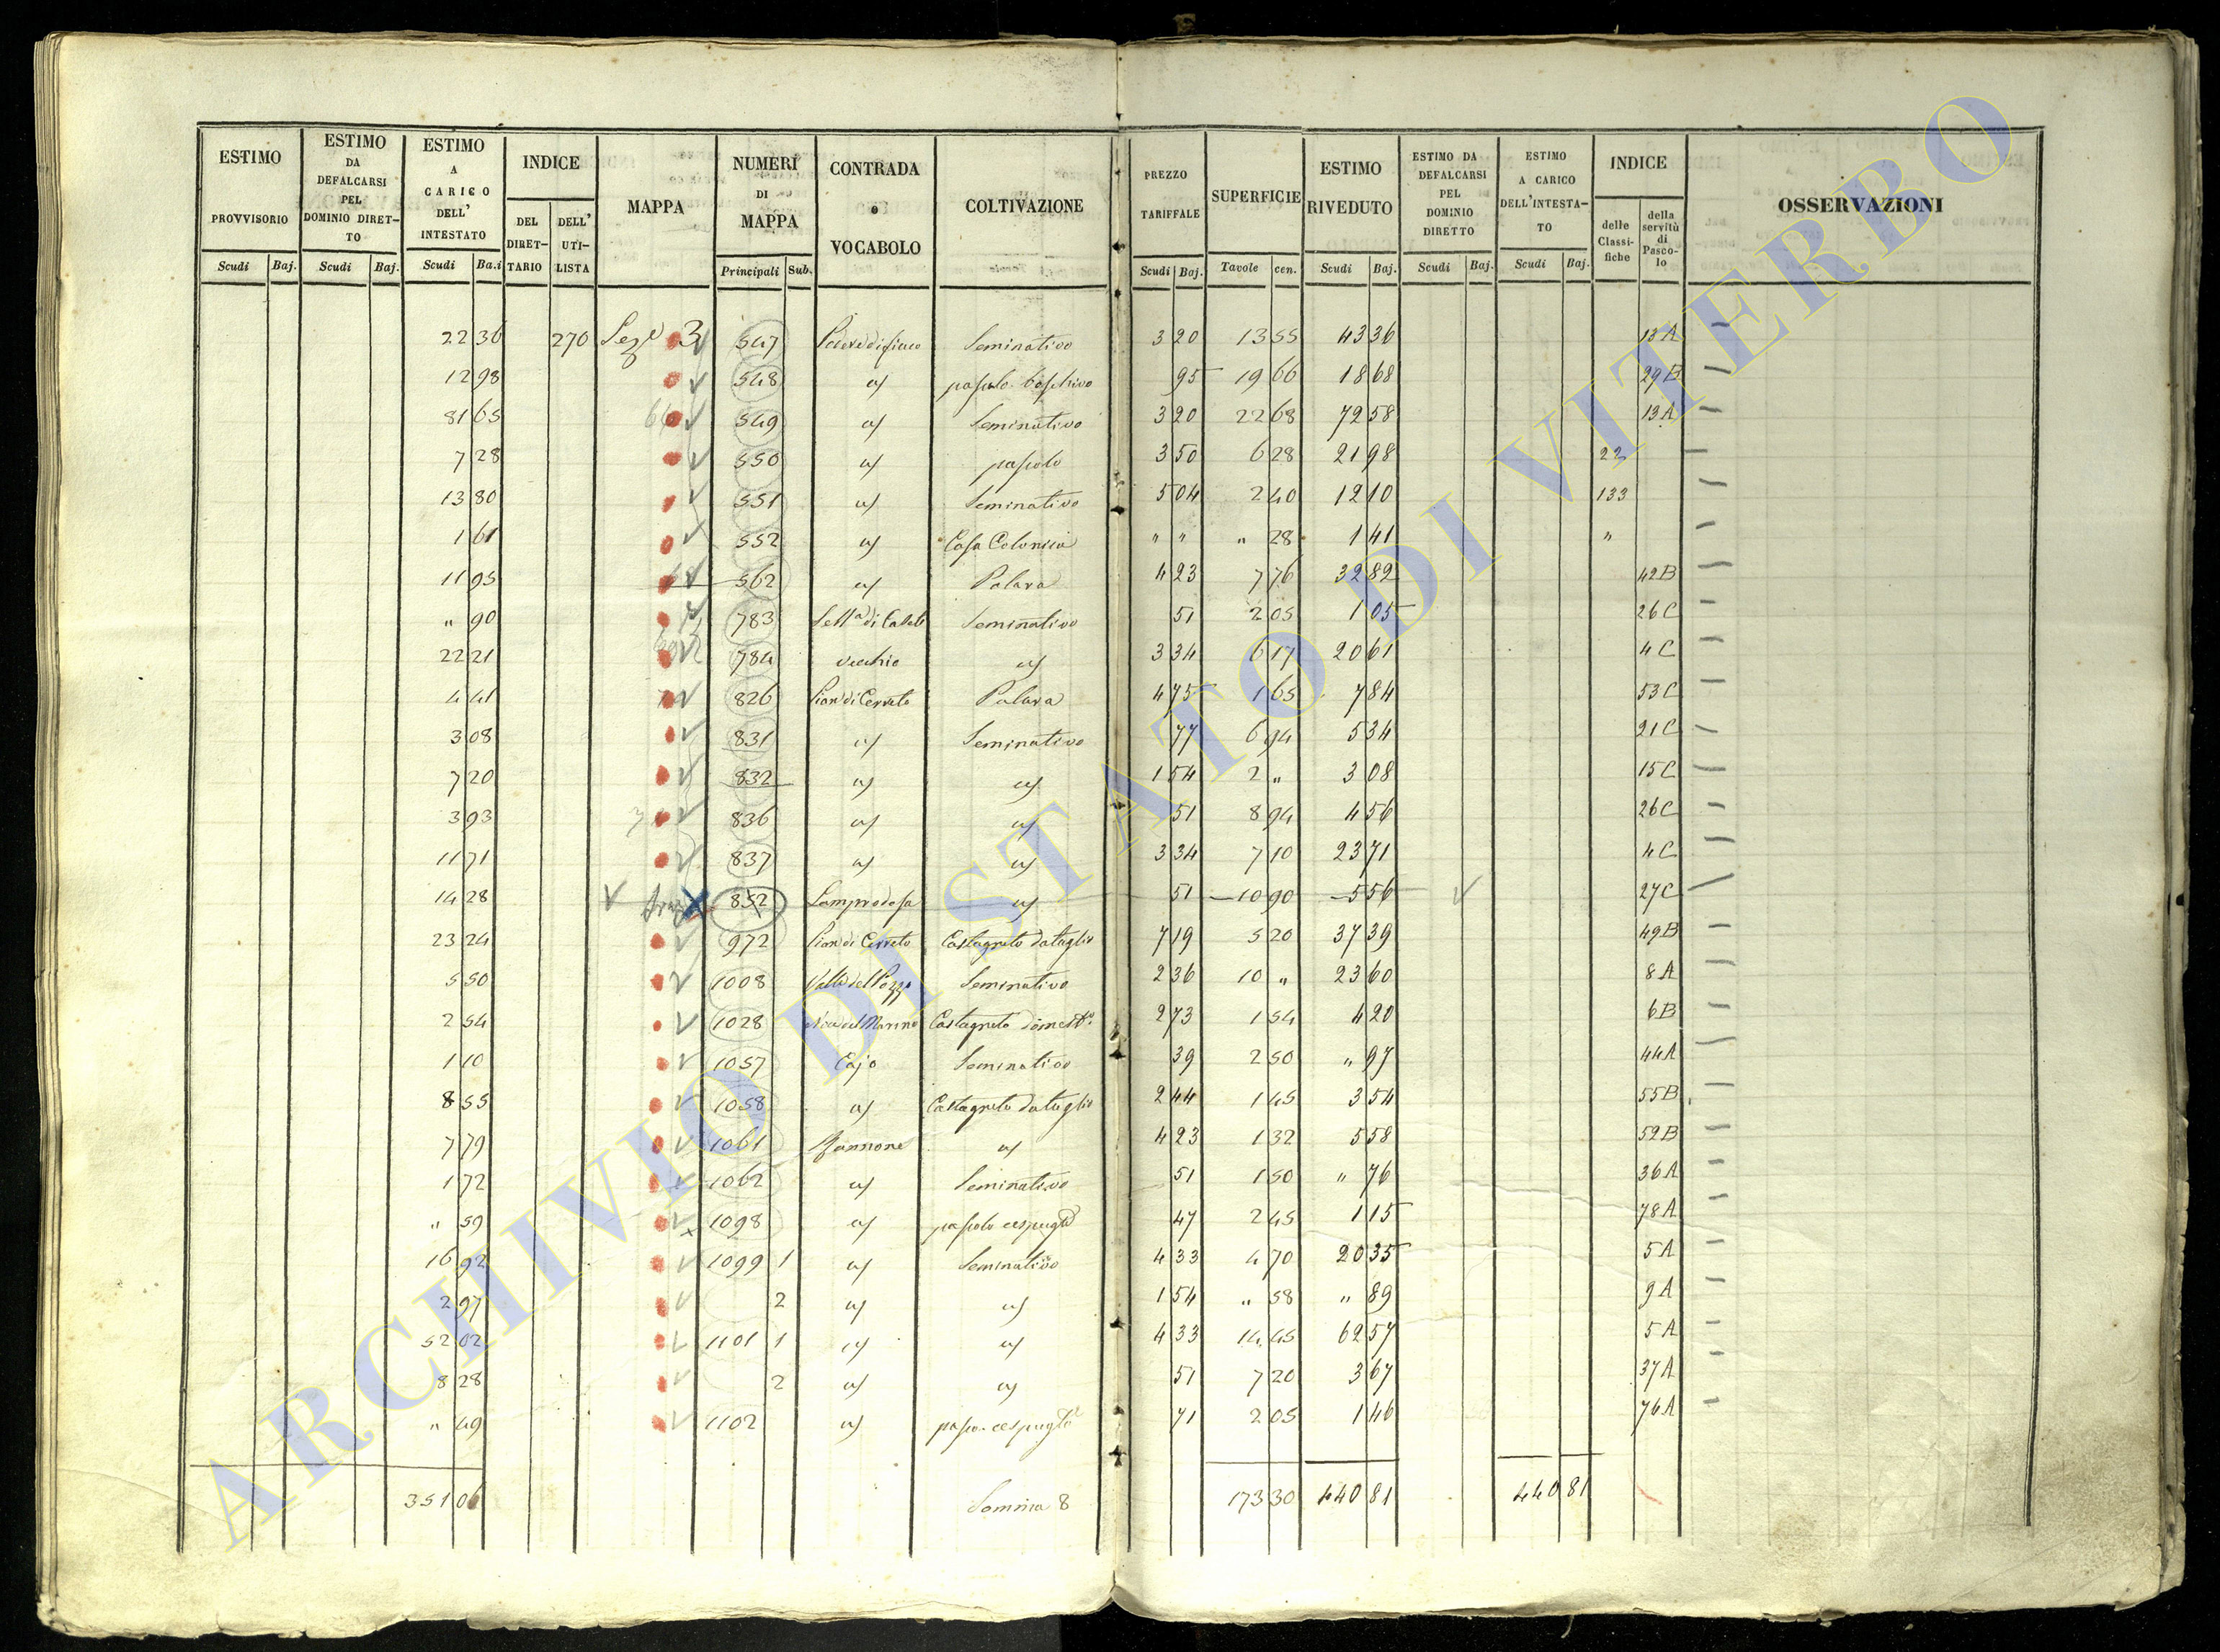 ESTIMO PROVVISORIO Scudi Baj. | ESTIMO DA DEFALCARSI PEL DOMINIO DIRETTO Scudi Baj. | ESTIMO A CARICO DELL' INTESTATO Scudi Ba.i | INDICE DEL DIRETTARIO DELL' UTILISTA | MAPPA | NUMERI DI MAPPA Principali Sub. | CONTRADA o VOCABOLO | COLTIVAZIONE | PREZZO TARIFFALE Scudi Baj. | SUPERFICIE Tavole cen. | ESTIMO RIVEDUTO Scudi Baj. | ESTIMO DA DEFALCARSI PEL DOMINIO DIRETTO Scudi Baj. | ESTIMO A CARICO DELL'INTESTATO Scudi Baj. | INDICE delle Classifiche della servitù di Pascolo | OSSERVAZIONI
22 36 270 3 547 Seminativo 3 20 13 55 43 36 13 A
12 98 548 a/ pascolo boschivo 95 19 66 18 68 29 B
81 65 549 a/ Seminativo 3 20 22 68 72 58 13 A
7 28 550 a/ pascolo 3 50 6 28 21 98 22
13 80 551 a/ Seminativo 5 04 2 40 12 10 133
1 61 552 a/ Casa Colonica " " " 28 1 41 "
11 95 562 a/ 4 23 7 76 32 82 42 B
" 90 783 Seminativo 51 2 05 1 05 26 C
22 21 784 vecchio a/ 3 34 6 17 20 61 4 C
4 41 826 Pian di Cerreto 4 75 1 65 7 84 53 C
3 08 831 a/ Seminativo 77 6 94 5 34 21 C
7 20 832 a/ a/ 1 54 2 " 3 08 15 C
3 93 836 a/ a/ 51 8 94 4 56 26 C
11 71 837 a/ a/ 3 34 7 10 23 71 4 C
14 28 852 a/ 51 10 90 5 56 27 C
23 24 972 Pian di Cerreto Castagneto da taglio 7 19 5 20 37 39 49 B
5 50 1008 Valle del Pozzo Seminativo 2 36 10 " 23 60 8 A
2 54 1028 Castagneto domest.o 2 73 1 54 4 20 6 B
1 10 1057 Cajo Seminativo 39 2 50 " 97 44 A
8 55 1058 a/ Castagneto da taglio 2 44 1 45 3 54 55 B
7 79 1061 a/ 4 23 1 32 5 58 52 B
1 72 1062 a/ Seminativo 51 1 50 " 76 36 A
" 59 1098 a/ pascolo cespugl.o 47 2 45 1 15 78 A
16 92 1099 1 a/ Seminativo 4 33 4 70 20 35 5 A
2 97 2 a/ a/ 1 54 " 58 " 89 9 A
52 02 1101 1 a/ a/ 4 33 14 45 62 57 5 A
8 28 2 a/ a/ 51 7 20 3 67 37 A
" 49 1102 a/ 71 2 05 1 46 76 A
351 06 Somma 8 173 30 440 81 440 81
ARCHIVIO DI STATO DI VITERBO